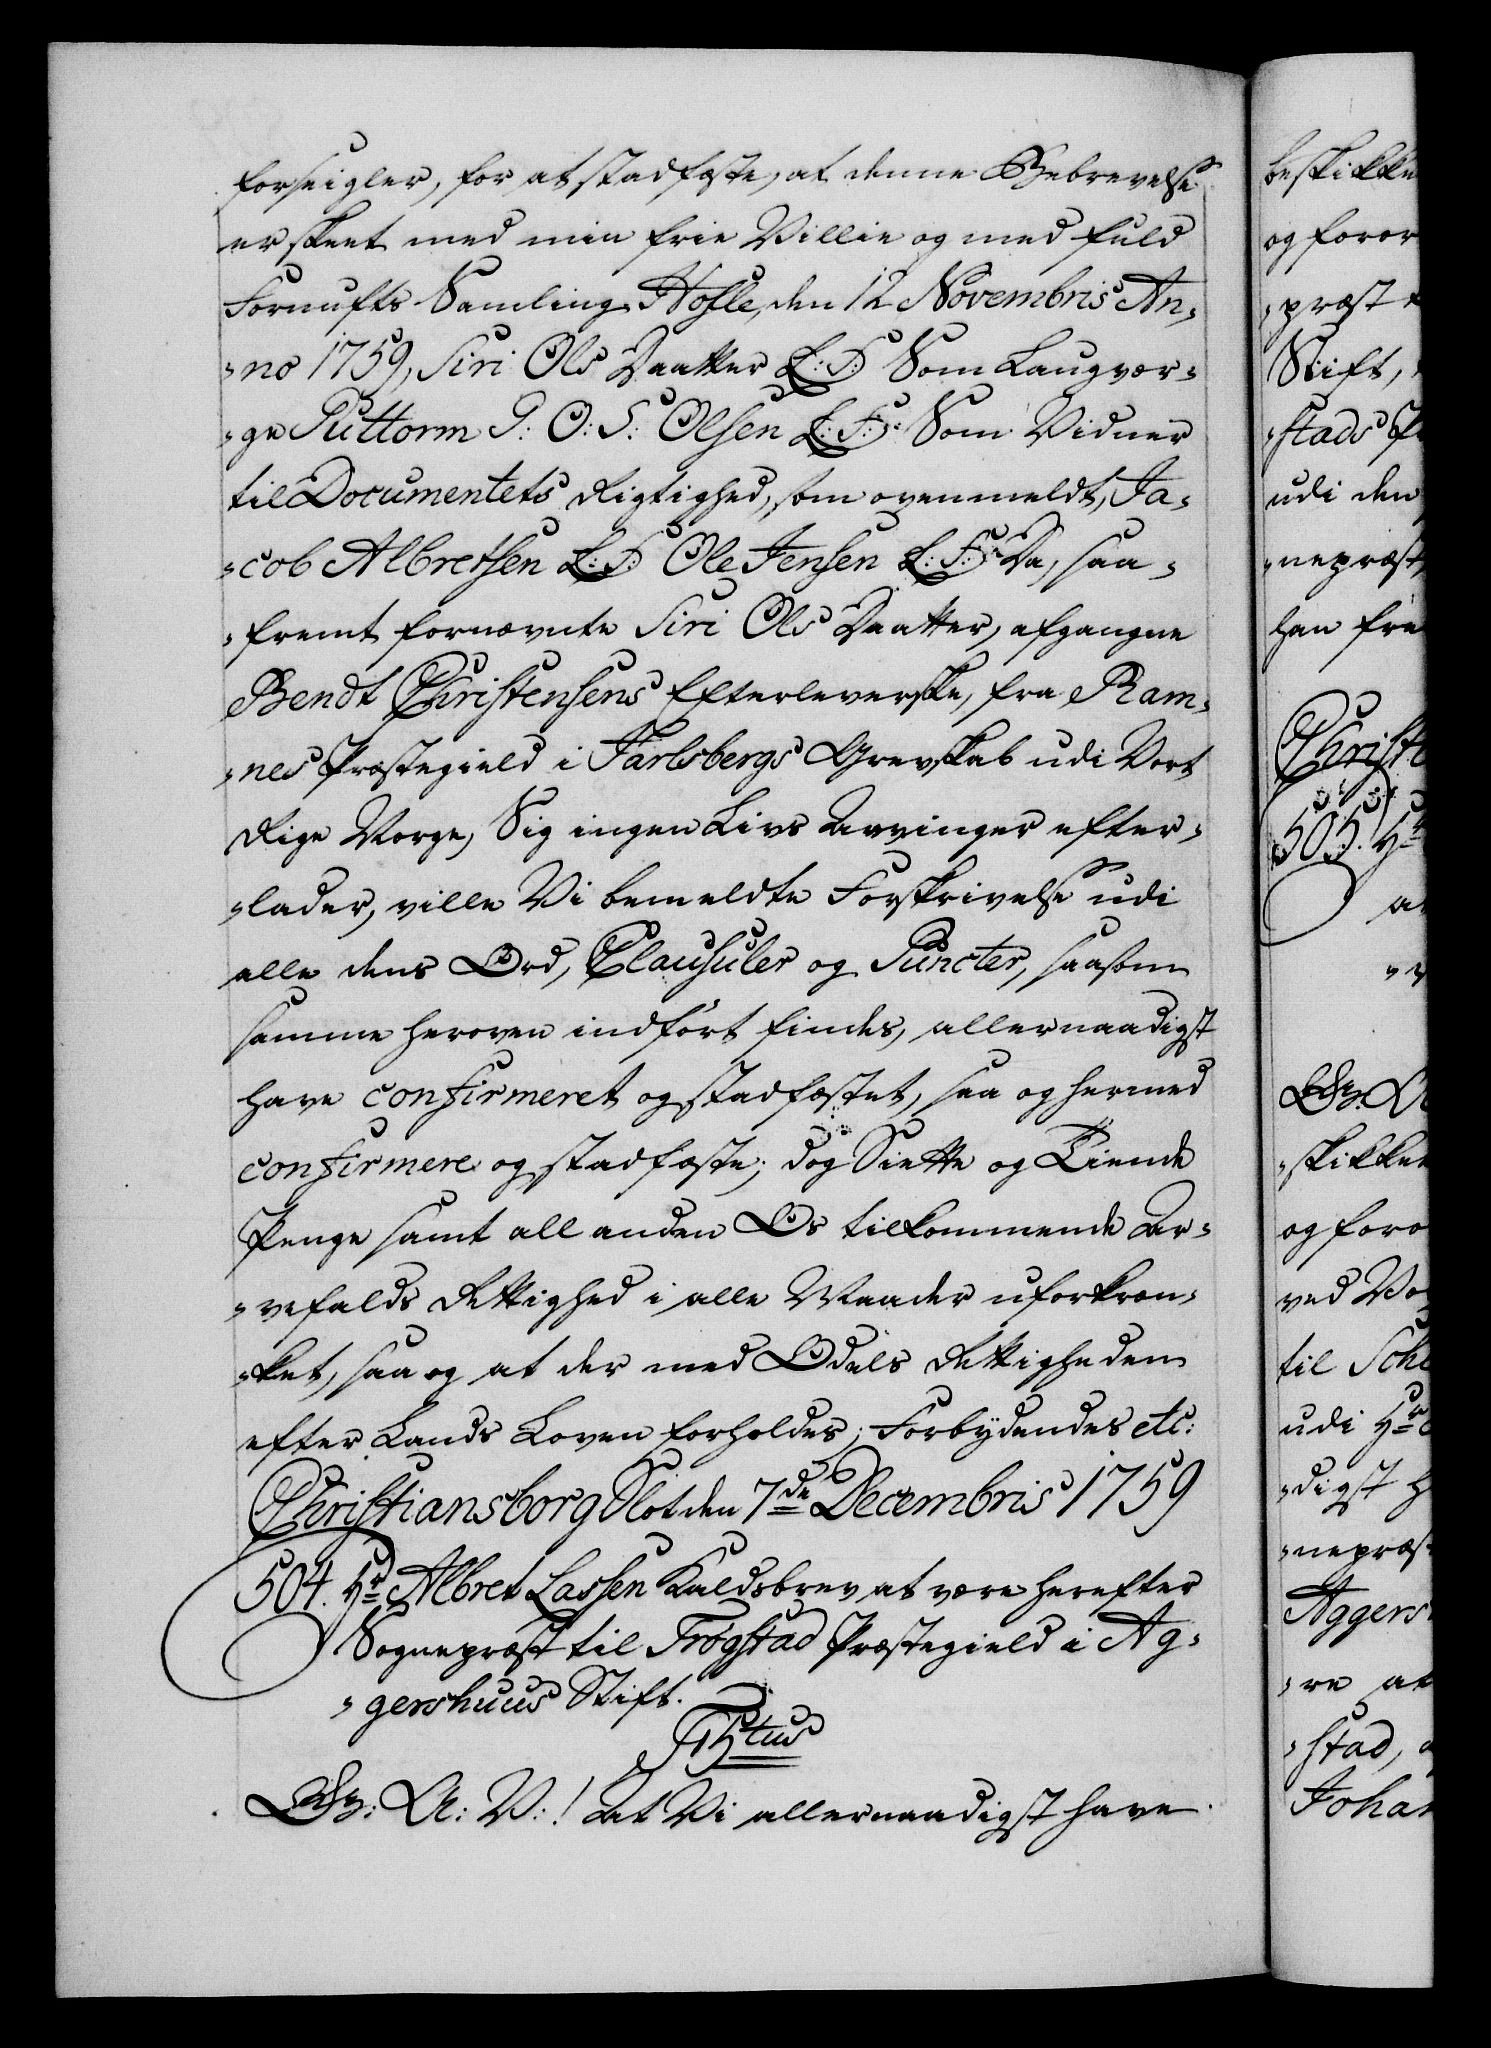 forseigler, for at stadfæste, at denne Bebrevelse
er skeet med min frie Villie og med fuld
Fornufts Samling. Hofle, den 12 Novembris An-
-no 1759, Siri Ols Daatter L: S: Som Laugvær-
-ge Puttorm P: O: S: Olsen L: S: Som Vidner
til Documentets Rigtighed, som ovenmeldt, Ja-
-cob Albretsen L: S: Ole Jensen L: S: Da, saa-
-fremt fornævnte Siri Ols Daatter, afgangne
Bendt Christensens Efterleverske, fra Ram-
-nes Præstegield i Jarlsbergs Grevskab udi Vort
Rige Norge, Sig ingen Livs Arvinger efter-
-lader, ville Vi bemeldte Forskrivelse udi
alle dens Ord, Clausuler og Puncter, saasom
samme heroven indført findes, allernaadigst
have confirmeret og stadfæstet, saa og hermed
confirmere og stadfæste; dog Siette og Tiende
Penge samt all anden Os tilkommende Ar-
-vefalds Rettighed i alle Maader uforkræn-
-ket, saa og at der med Odels Rettigheden
efter Lands Loven forholdes; Forbydendes etc:
Christiansborg Slot den 7de Decembris 1759
504. Hr Albret Lassen Kaldsbrev at være herefter
Sognepræst til Trøgstad Præstegield i Ag-
-gershuus Stift.
F5tus
Gr: A: V:! At Vi allernaadigst have
beskikke
og foror
-præst
Stift,
-stads Pr
udi den
-nepræst
han fra
Christi
505. Hr
-skikket
og foro
ved Vo
til
udi Hr
-digst h
-nepræs
Aggers
-re at
-stad,
Johan